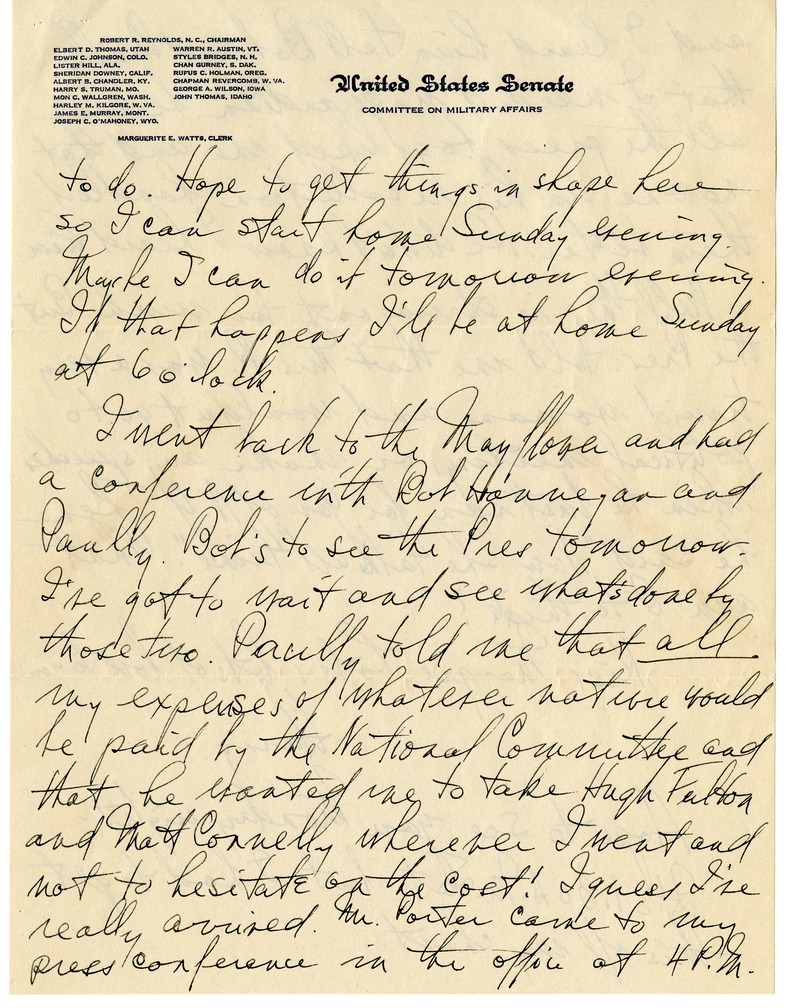 ROBERT R. REYNOLDS, N. C., CHAIRMAN
ELBERT D. THOMAS, UTAH
EDWIN C. JOHNSON, COLO.
LISTER HILL, ALA.
SHERIDAN DOWNEY, CALIF.
ALBERT B. CHANDLER, KY.
HARRY S. TRUMAN, MO.
MON C. WALLGREN, WASH.
HARLEY M. KILGORE, W. VA.
JAMES E. MURRAY, MONT.
JOSEPH C. O'MAHONEY, WYO.
WARREN R. AUSTIN, VT.
STYLES BRIDGES, N. H.
CHAN GURNEY, S. DAK.
RUFUS C. HOLMAN, OREG.
CHAPMAN REVERCOMB, W. VA.
GEORGE A. WILSON, IOWA
JOHN THOMAS, IDAHO
MARGUERITE E. WATTS, CLERK
United States Senate
COMMITTEE ON MILITARY AFFAIRS
to do. Hope to get things in shape here
so I can start home Sunday evening.
Maybe I can do it tomorrow evening.
If that happens I'll be at home Sunday
at 6 o'lock.
I went back to the Mayflower and had
a conference with Bob Hannegan and
Paully. Bob's to see the Pres tomorrow.
I've got to wait and see what's done by
those two. Paully told me that all
my expenses of whatever nature would
be paid by the National Committee and
that he wanted me to take Hugh Fulton
and Matt Connelly wherever I went and
not to hesitate on the cost! I guess I've
really arrived. Mr. Porter came to my
press conference in the office at 4 P.M.